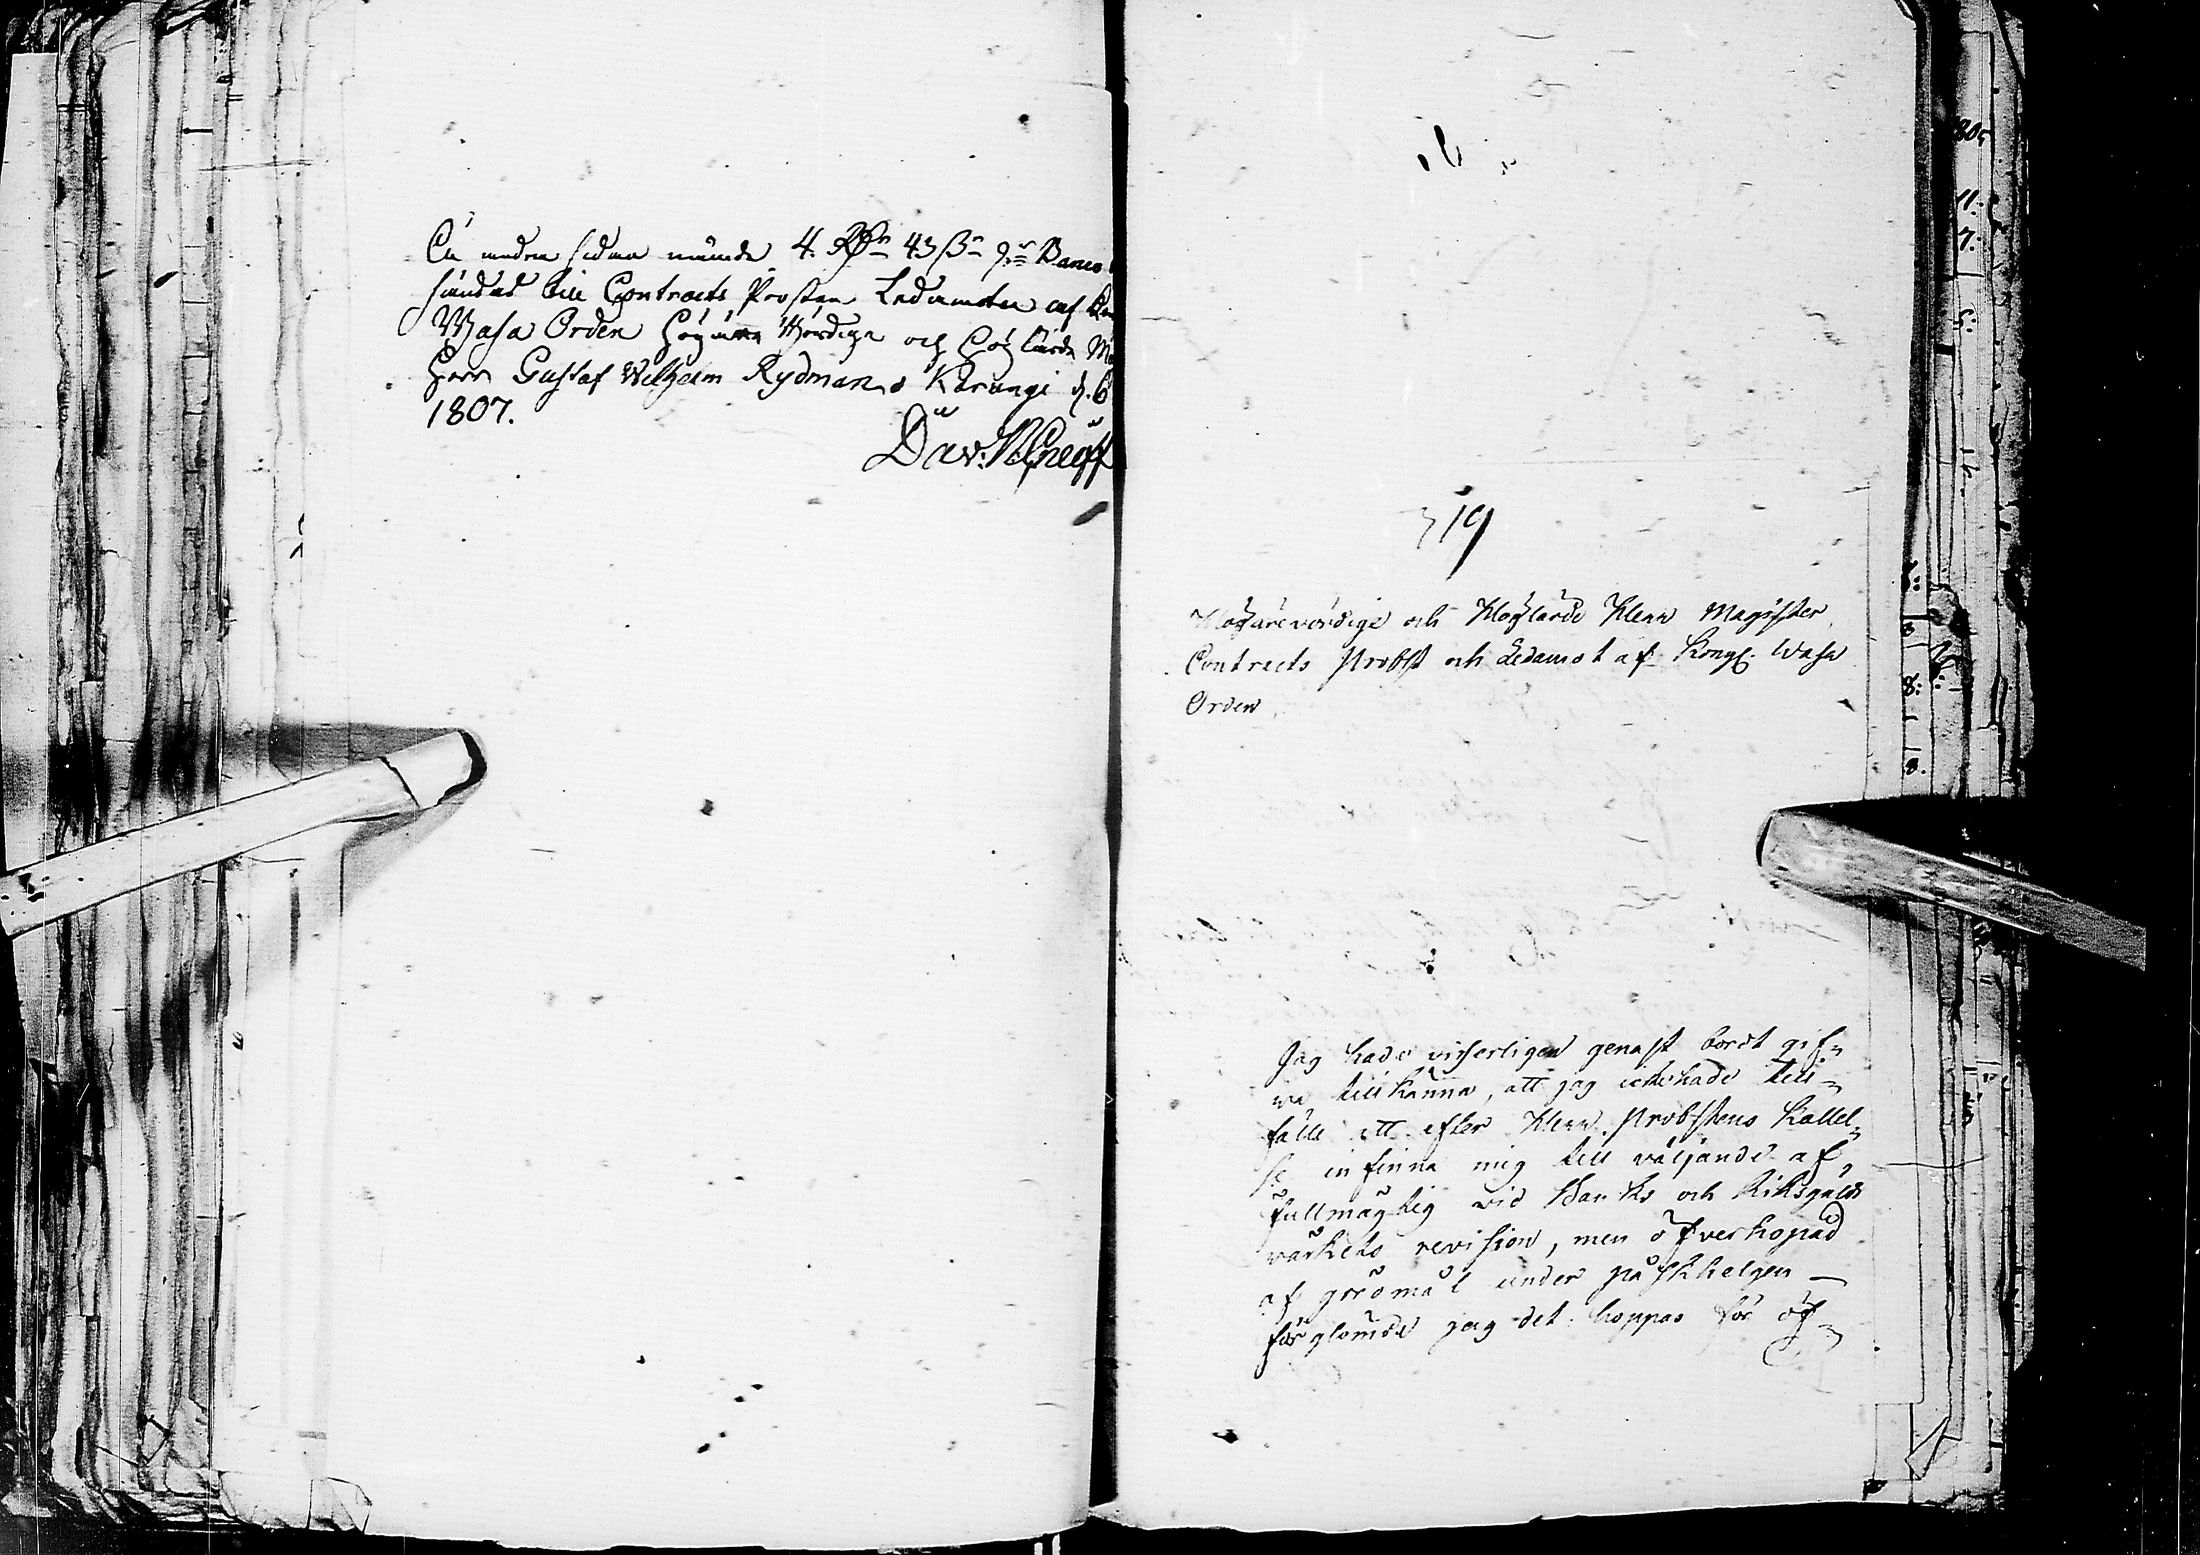 På andra sidan nämde 4. Rdr 43 ß 9 rs Banco
sändes till Contracts Prosten Ledamoten af
Wasa Orden Högärevördige och Höglärde
Herr Gustaf Wilhelm Rydman. Karungi d. 6
1807.
Dav:
319
Högärevördige och Höglärde Herr Magister,
Contracts Probst och Ledamot af Kongl. Wasa
Orden
Jag hade visserligen genast bordt gif-
va tillkänna, att jag icke hade till-
fälle att efter Herr Probstens Kallel-
se infinna mig till väljande af
fullmägtig vid Banko och Riksgälds
värkets revision, men öfverhopad
af göromål under påskhelgen —
förglömde jag det. hoppas för öf-